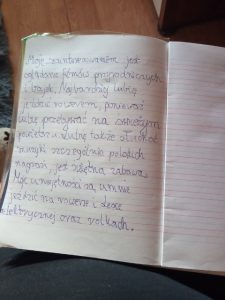 Moje zainteresowaniem jest
oglądanie filmów przyrodniczych
i bajek. Najbardziej lubię
jeździć rowerem, ponieważ
lubię przebywać na świeżym
powietrzu. Lubię także słuchać
muzyki szczególnie polskich
nagrań, jest świetna zabawa.
Moje umiejętności są, umiem
jeździć na rowerze i desce
elektrycznej oraz rolkach.